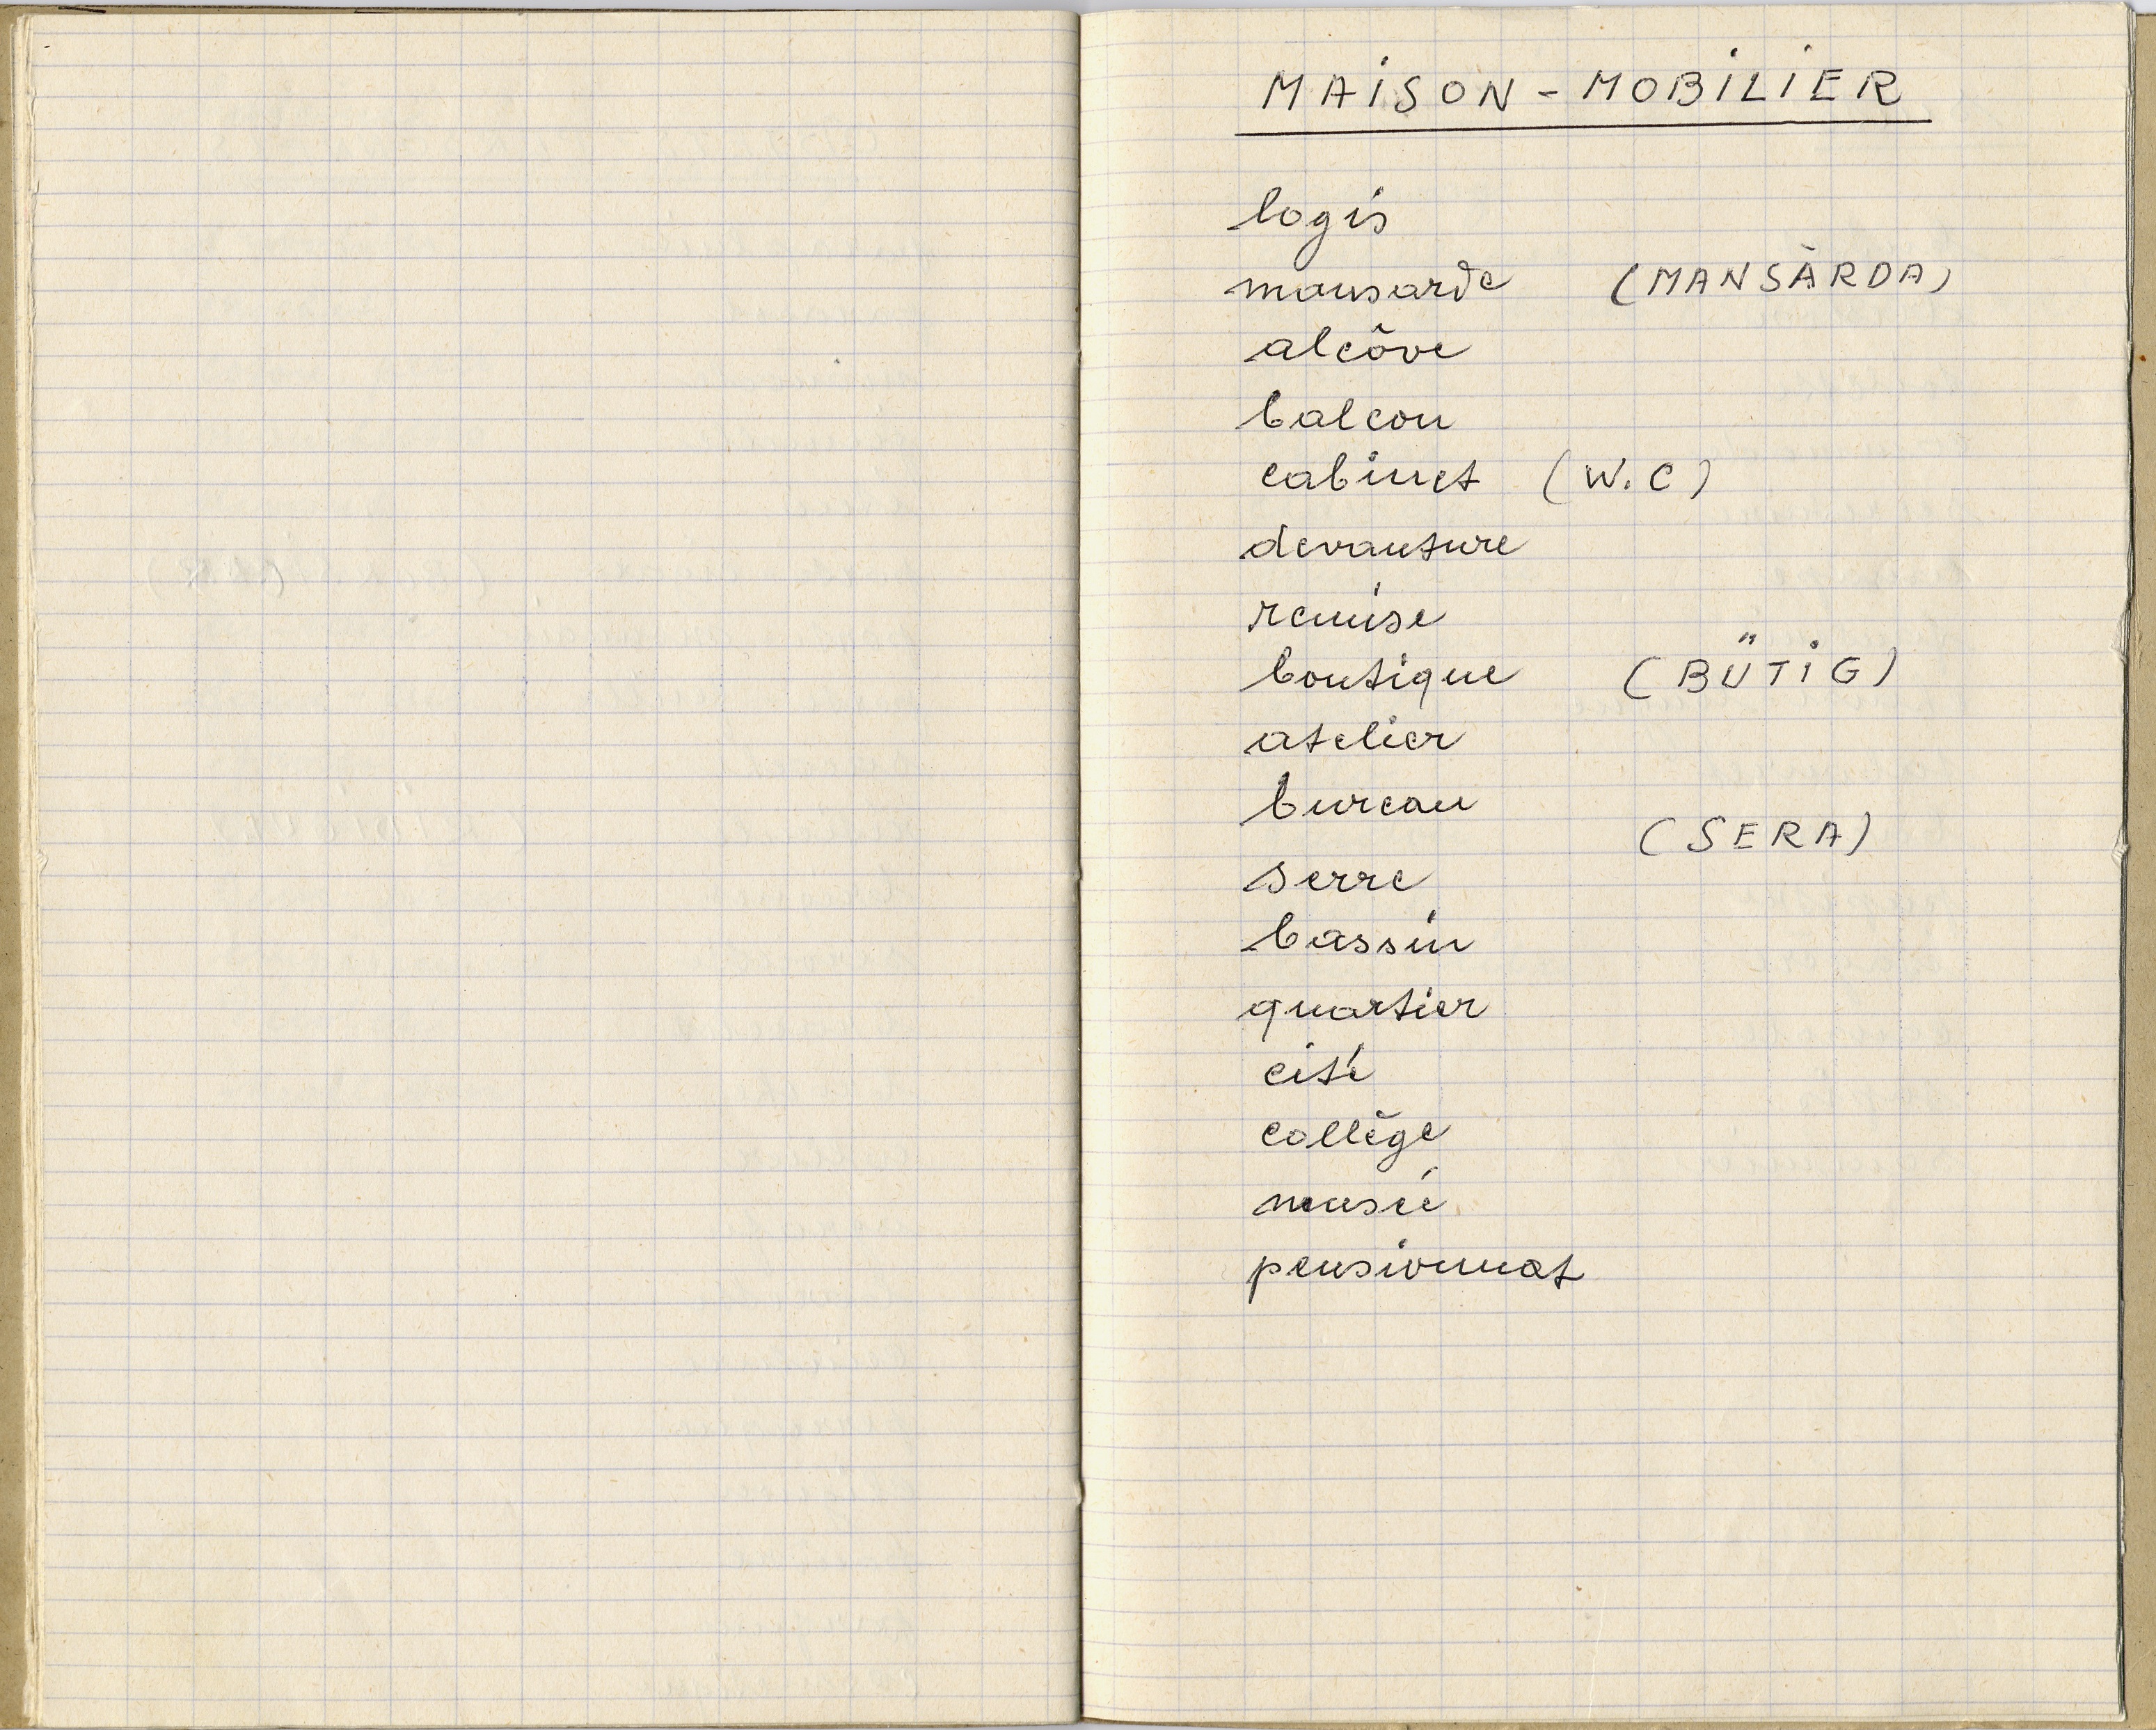 MAiSON - MOBiLiER
logis
mansarde (MANSÀRDA)
alcôve
balcon
cabinet (W.C)
devanture
remise
boutique (BÜTiG)
atelier
bureau
(SERA)
serre
bassin
quartier
cité
collège
musée
pensionnat